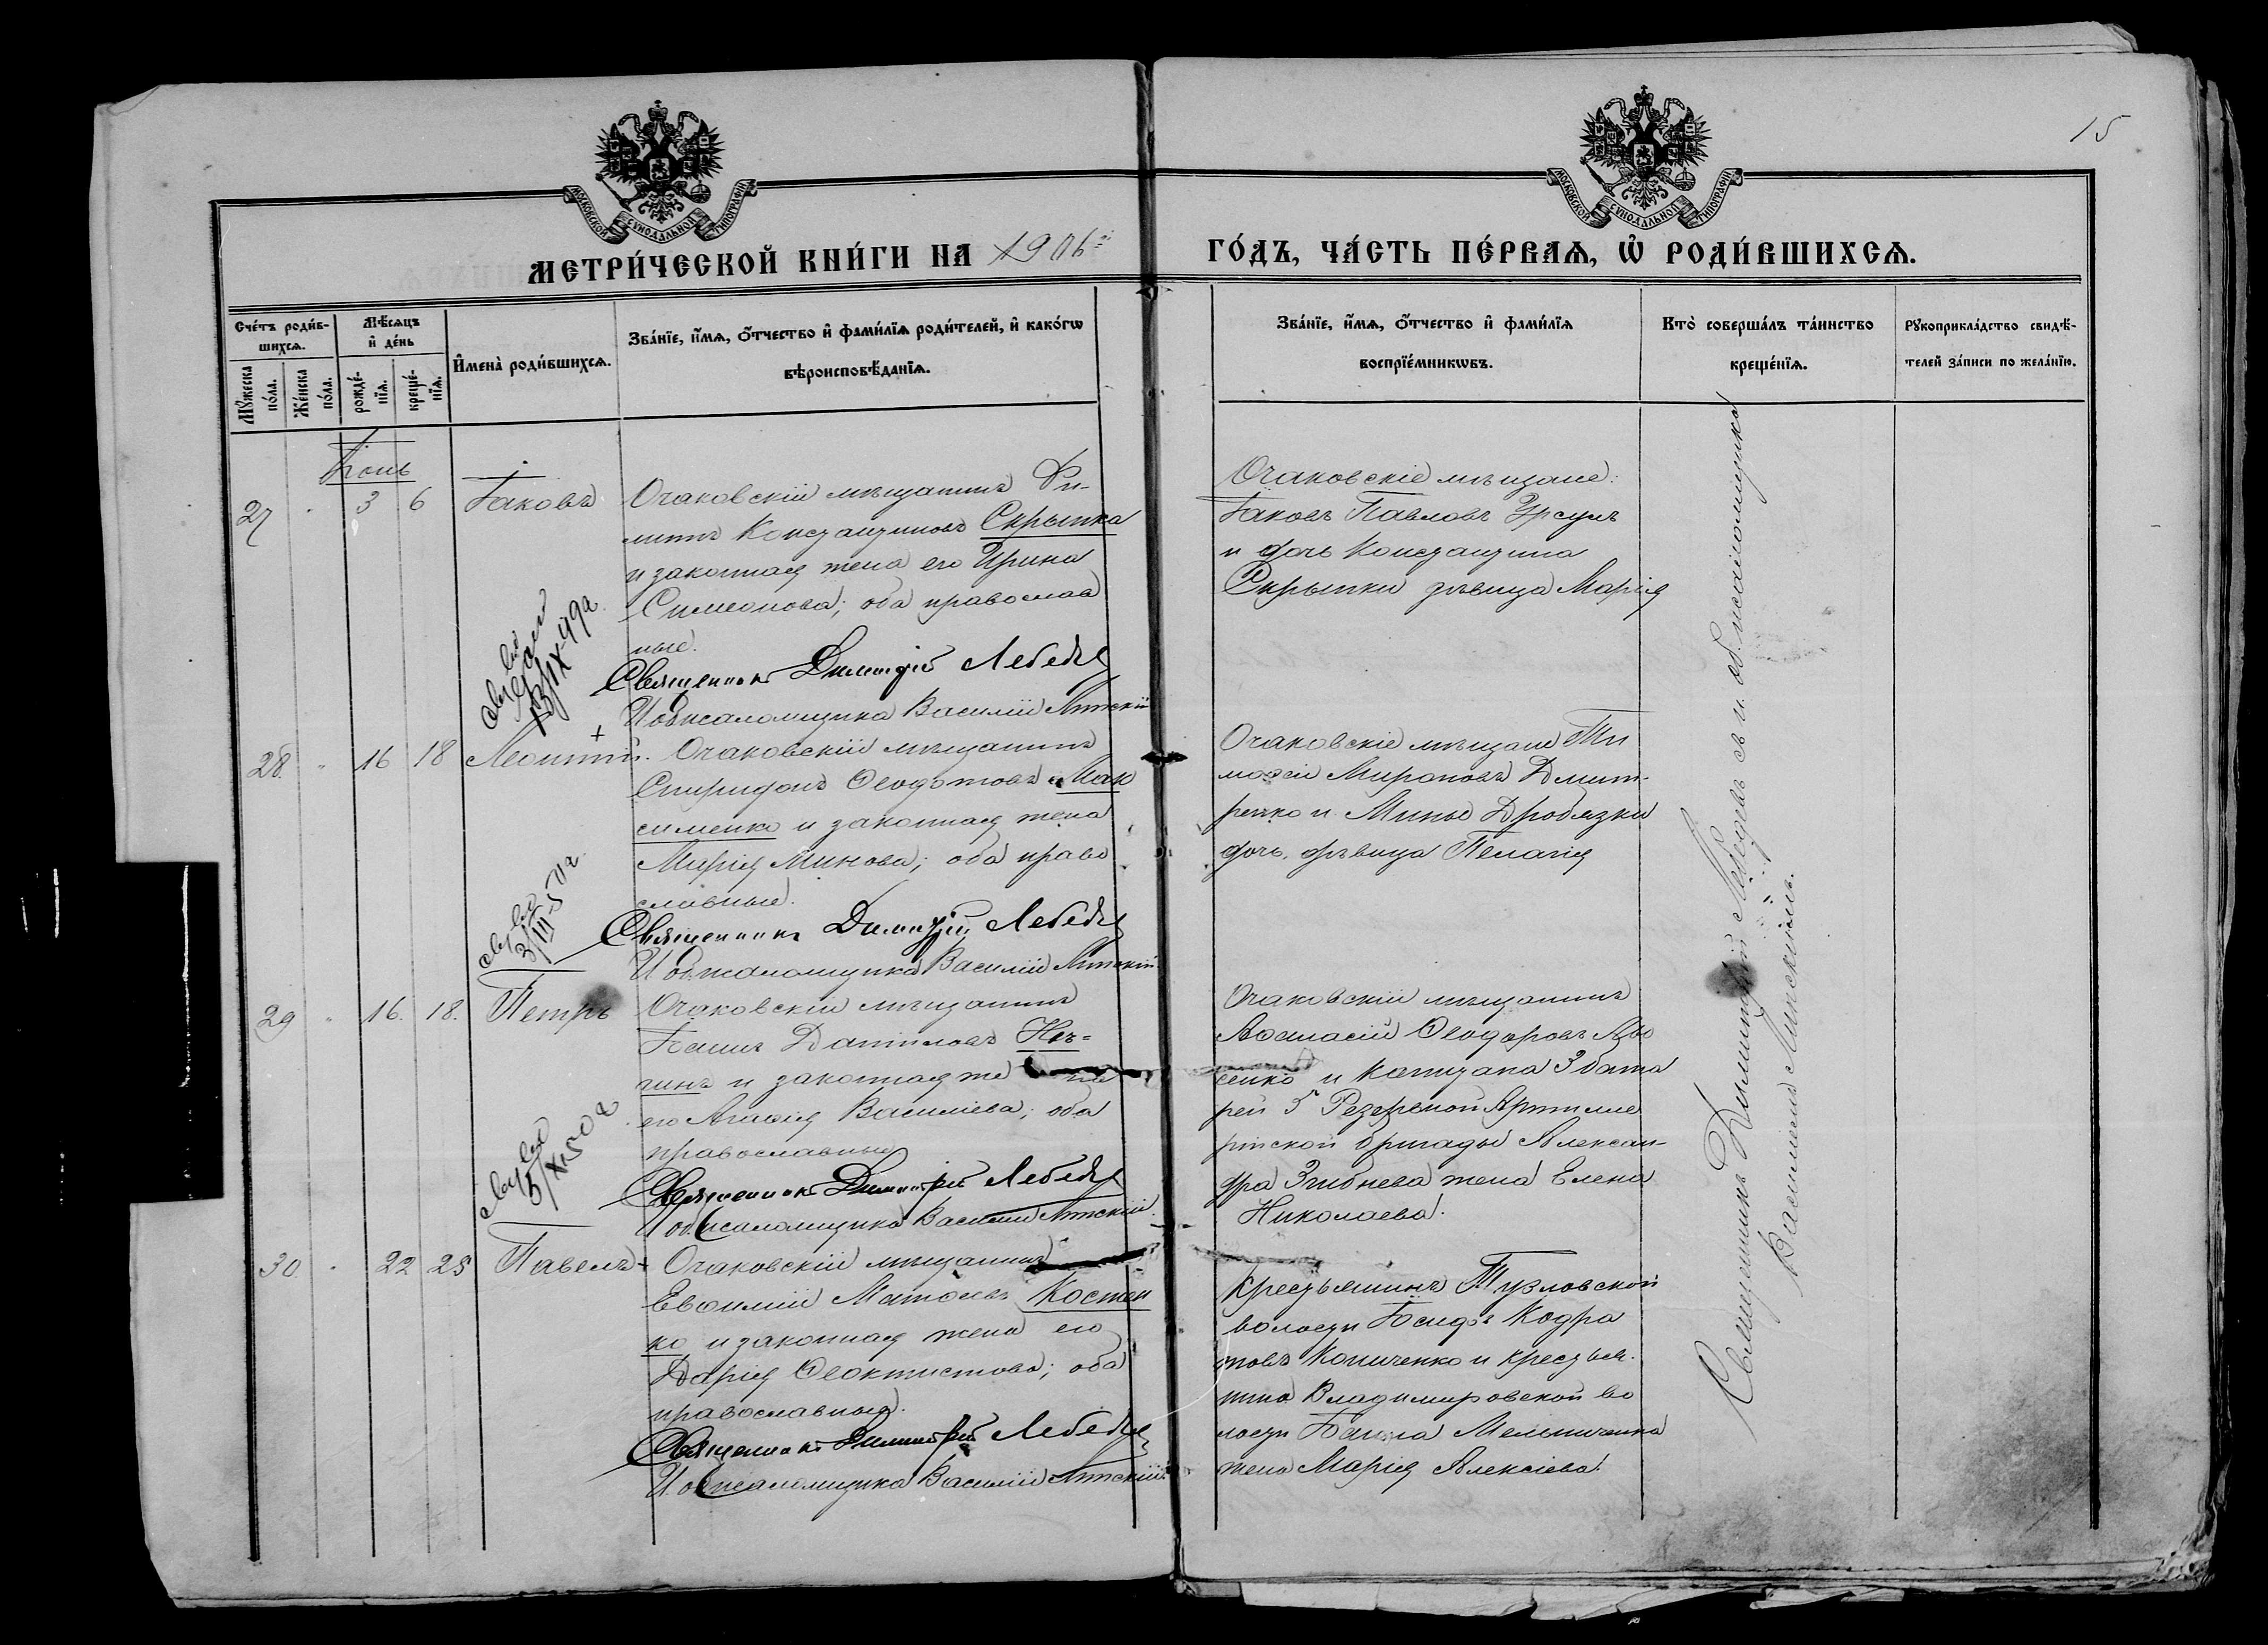 15
МОСКОВСКОЙ СУНОДАЛЬНОЙ ТИПОГРАФІИ
МОСКОВСКОЙ СУНОДАЛЬНОЙ ТИПОГРАФІИ
МЕТРИ́ЧЕСКОЙ КНИ́ГИ НА 1906
ГО́ДЪ, ЧА́СТЬ ПЕ́РВАѦ, Ѡ҆ РОДИ́ВШИХСѦ.
Сче́тъ роди́в-
шихсѧ.
Мꙋ́жеска
по́ла.
Же́нска
по́ла.
Мѣ́сѧцъ
и҆ де́нь
рожде́-
нїѧ.
креще́-
нїѧ.
И҆мена̀ роди́вшихсѧ.
Зва́нїе, и҆́мѧ, ѻ҆́тчество и҆ фами́лїѧ роди́телей, и҆ како́гѡ
вѣроисповѣ́данїѧ.
Зва́нїе, и҆́мѧ, ѻ҆́тчество и҆ фами́лїѧ
воспрїе́мникѡвъ.
Кто̀ соверша́лъ та́инство
креще́нїѧ.
Рꙋкоприкла́дство свидѣ́-
телей за́писи по жела́нїю.
Іюнь
27 3 6 Іаковъ
Очаковскій мѣщанинъ Фи-
липпъ Константиновъ Скрыпка
и законная жена его Ирина
Симеонова; оба православ
ные.
Священникъ Димитрій Лебедевъ
И. об. псаломщика Василій
Очаковскіе мѣщане:
Іаковъ Павловъ Урсулъ
и дочь Константина
Скрыпки дѣвица Марія
13/IX-49г.
28. 16 18 Леонтій.
Очаковскій мѣщанинъ
Спиридонъ Ѳеодотовъ Мак
сименко и законная жена
Марія Минова; оба право
славные.
Священникъ Димитрій Лебедевъ
И. об. псаломщика Василій
Очаковскіе мѣщане Ти
моѳей Мироновъ Дмит-
ренко и Мины Дробязки
дочь, дѣвица Пелагія
3/III-50г.
29 16. 18. Петръ
Очаковскій мѣщанинъ
Іаннъ Даниловъ
и законная жена
его Васильева; оба
православные
Священникъ Димитрій Лебедевъ
И об. псаломщика Василій
Очаковскій мѣщанинъ
Аѳанасій Ѳеодоровъ
сенко и капитана 3 бата
реи 5й Резервной Артилле
рійской бригады Алексан-
дра жена Елена
Николаева.
5/XI-50г
30. 22 25 Павелъ
Очаковскій мѣщанинъ
Евѳимій Костен
ко и законная жена его
Дарія Ѳеоктистова; оба
православные.
Священникъ Димитрій Лебедевъ
И. об. псаломщика Василій
Крестьянинъ Тузловской
волости Іосифъ Кодра
товъ Копиченко и крестья-
нина Владимировской во
лости Іанна Мельниченка
жена Марія Алексіева.
Священникъ Димитрій Лебедевъ съ и. об. псаломщика
Василіемъ